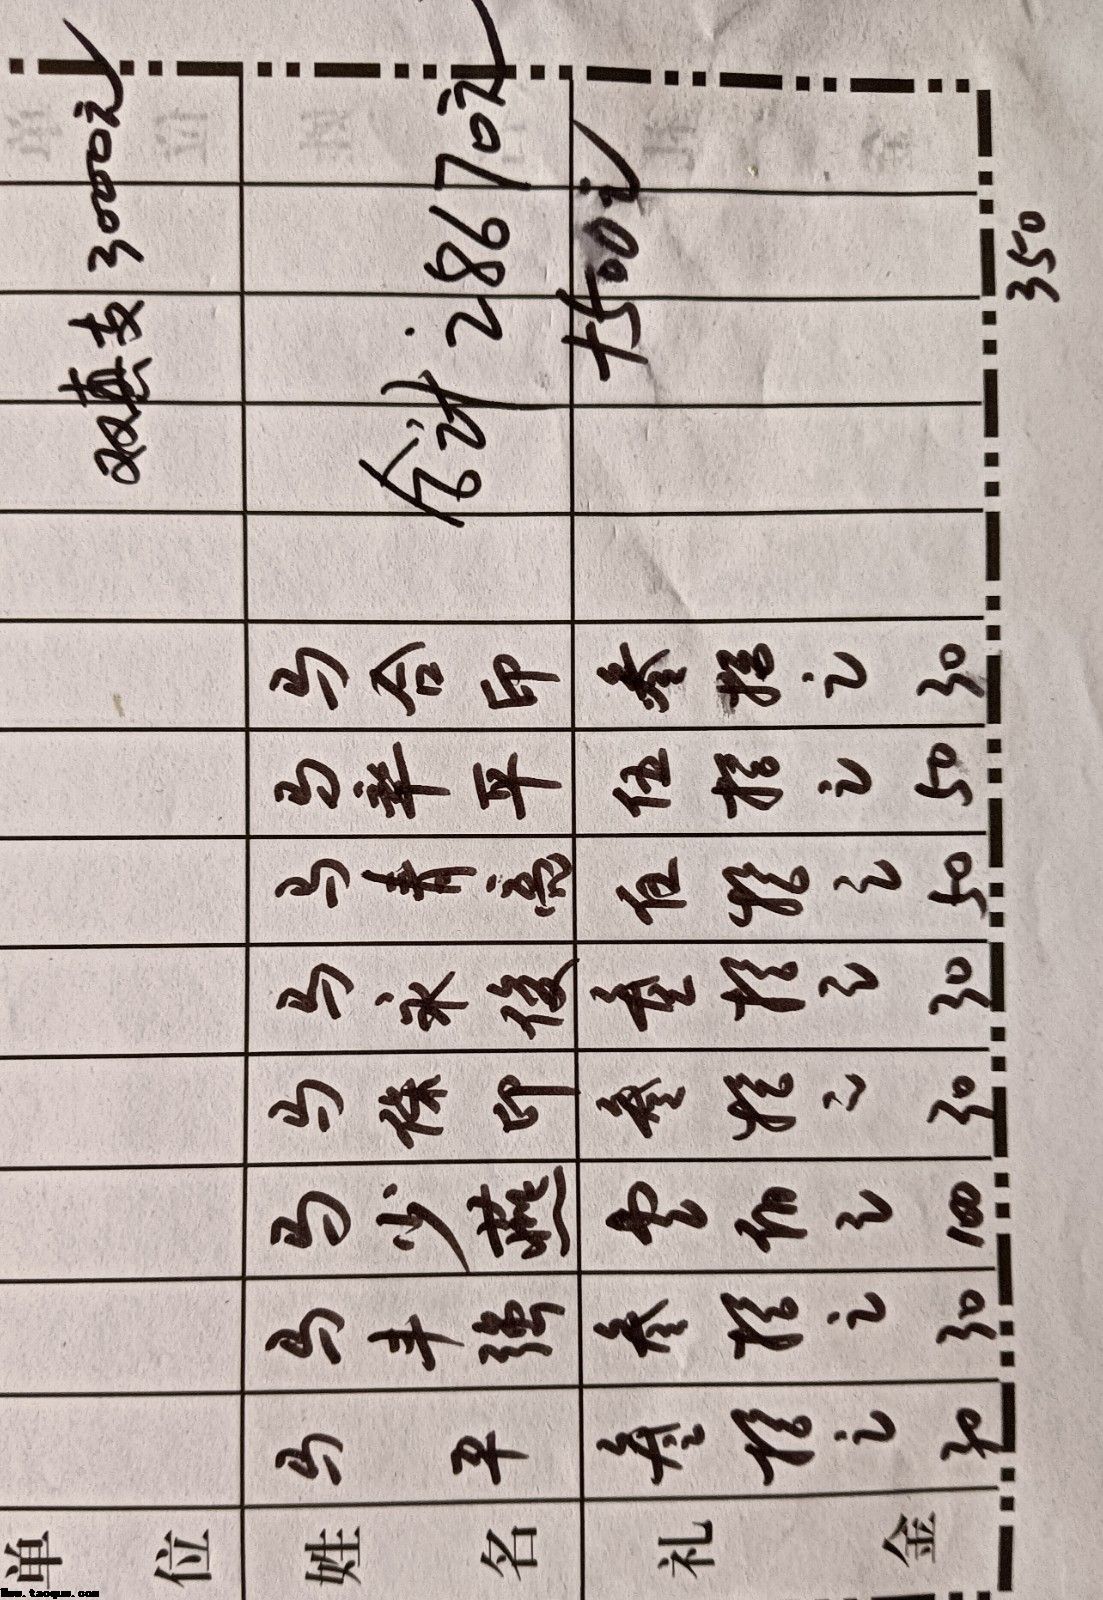 单位
姓名
礼金
马平
叁拾元
30
马丰强
叁拾元
30
马少燕
壹佰元
100
马保印
叁拾元
30
马永俊
叁拾元
30
马青亮
伍拾元
50
马华平
伍拾元
50
马合印
叁拾元
30
350
双惠支3000元
合计28670元
+500元
www.taoque.com